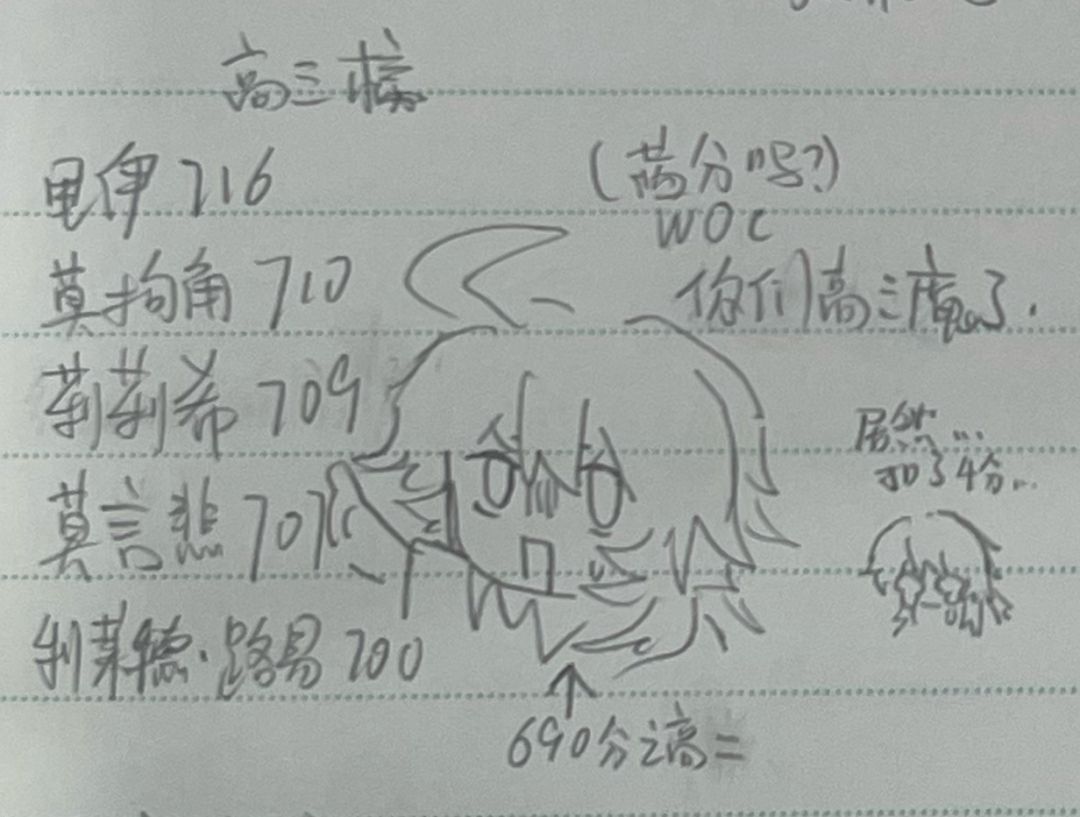 高三榜
电伊 716
(满分吗?)
WOC
莫拘角 710
你们高三疯了.
莉莉希 709
居然...
扣了4分...
莫言悲 707
利莱德·路易 700
690分之高二